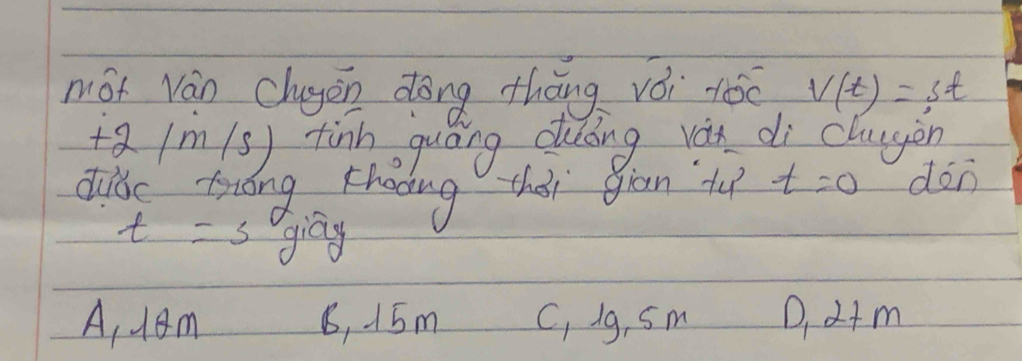 một vận chuyển động thẳng với tốc v(t) = 3t
+2 (m/s) tính quãng đường vật di chuyển
được trong khoảng thời gian từ t=0 đến
t = 3 giây
A, 18m B, 15m C, 19,5m D, 27m